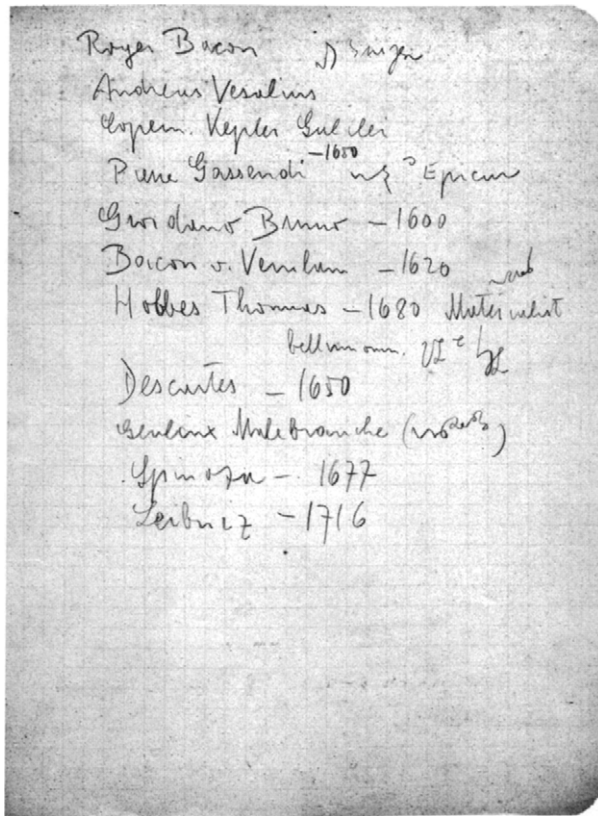 Roger Bacon
Andreas Vesalius
Copern. Kepler Galilei
Pierre Gassendi -1650 Epicur
Giordano Bruno - 1600
Bacon v. Verulam - 1620
Hobbes Thomas - 1680 Materialist
bellum omn.
Descartes - 1650
Geulinx Malebranche
Spinoza - 1677
Leibniz - 1716